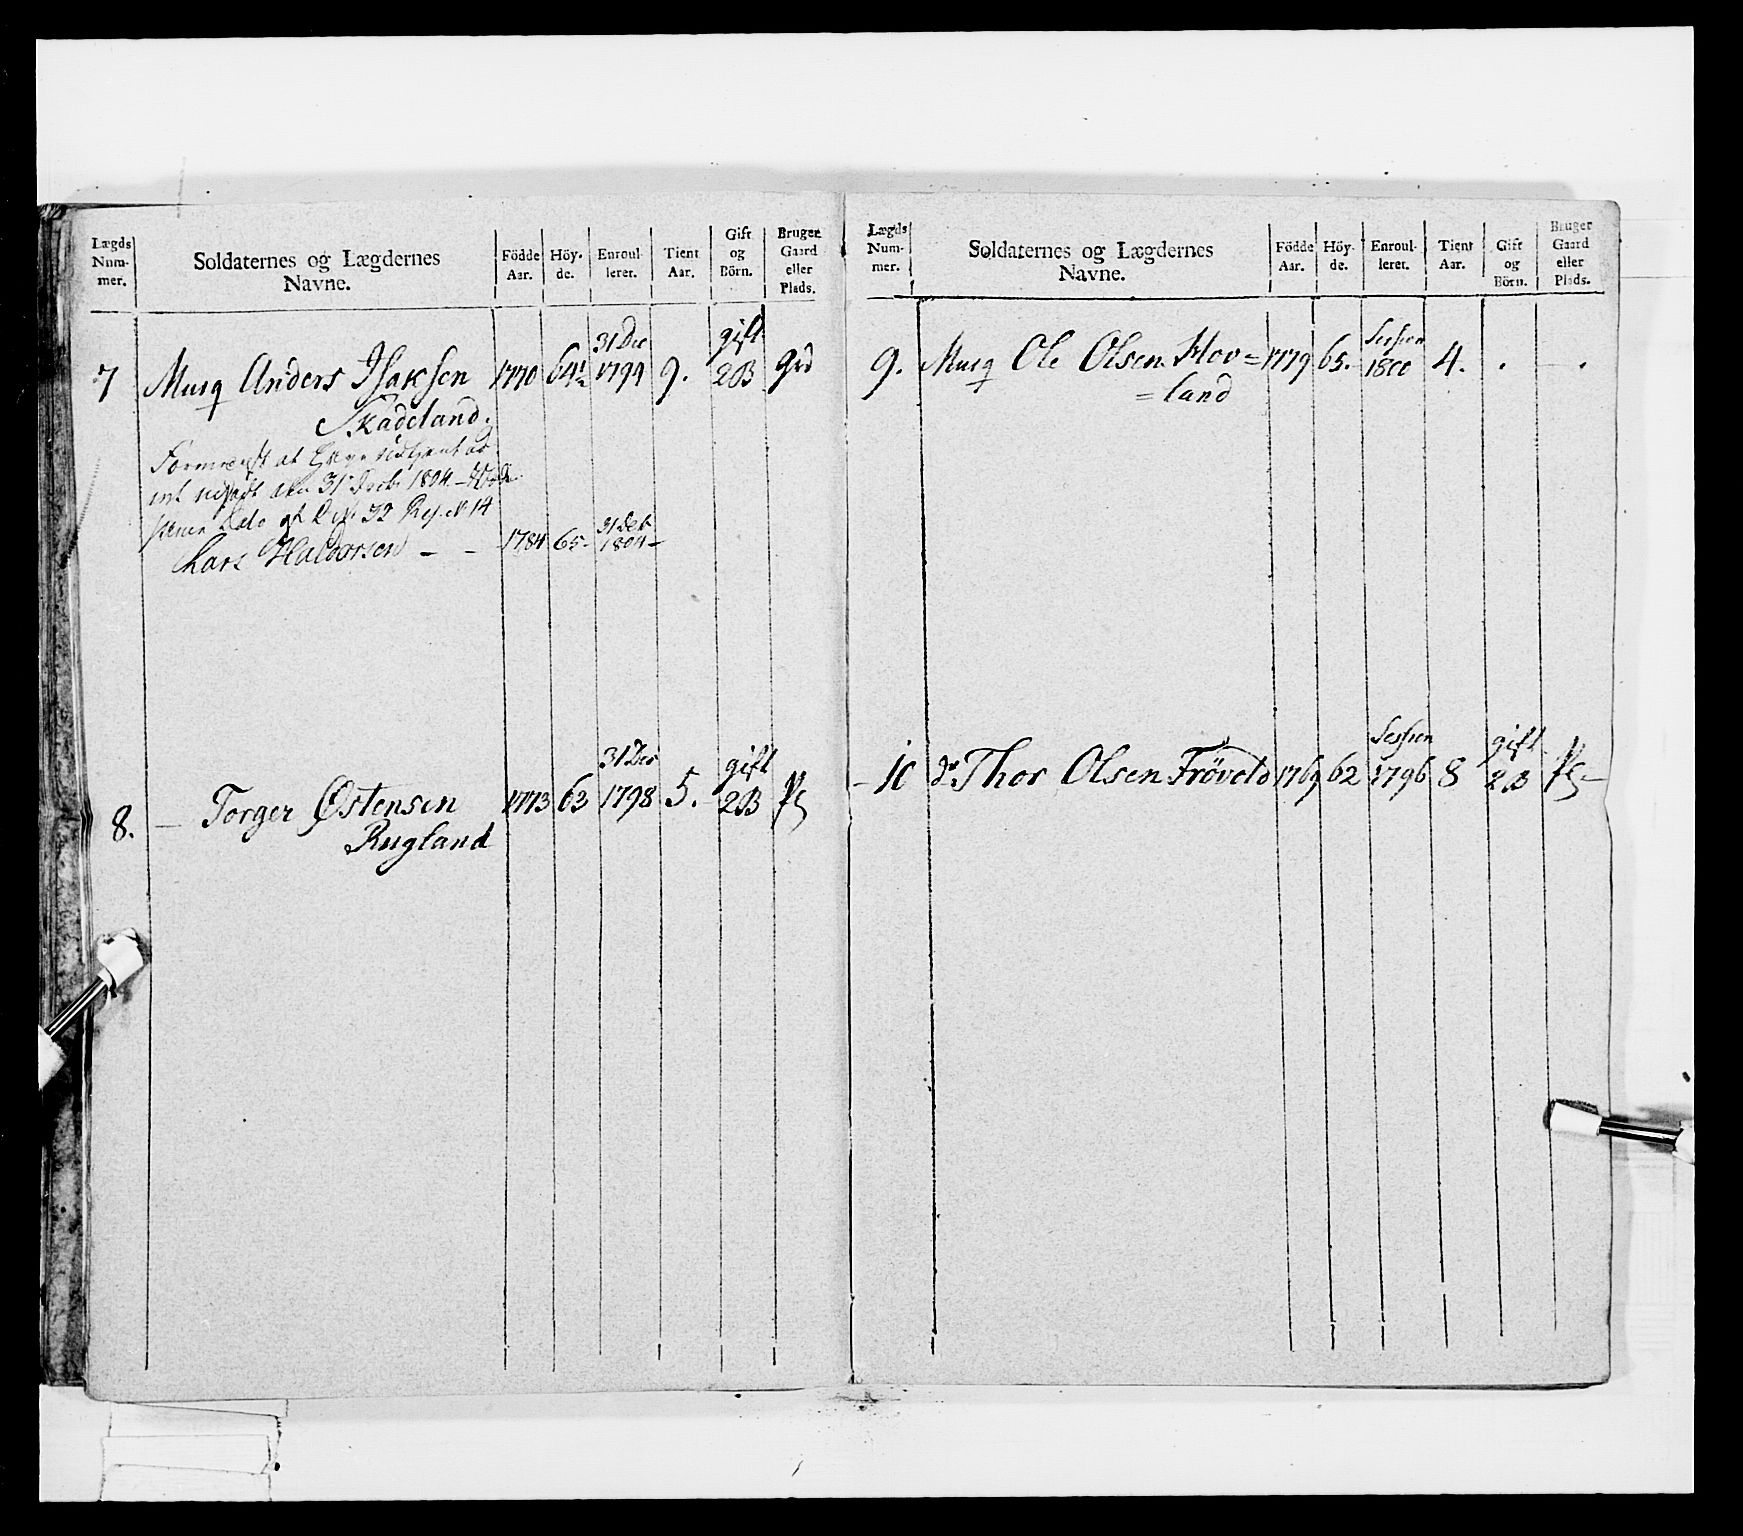 Lægds Num- mer.
Soldaternes og Lægdernes Navne.
Födde Aar.
Höy- de.
Enroul- leret.
Tient Aar.
Gift og Börn.
Bruger Gaard eller Plads.
7 Musq Anders Isaksen 1770 64½ 31 Dec 1794 9. gift 2B Grd
Skadeland.
31 Decbr 1804
No 14
Lars Haldorsen - - 1784 65 31 Dec 1804
8. — Torger Østensen 1773 63 31 Dec 1798 5. gift 2B Pl
Rugland
Lægds Num- mer.
Soldaternes og Lægdernes Navne.
Födde Aar.
Höy- de.
Enroul- leret.
Tient Aar.
Gift og Börn.
Bruger Gaard eller Plads.
9. Musq Ole Olsen Hov= 1779 65. Session 1800 4. . .
=land
10 do Thor Olsen Frövold 1769 62 Session 1796 8 gift 2B Pl